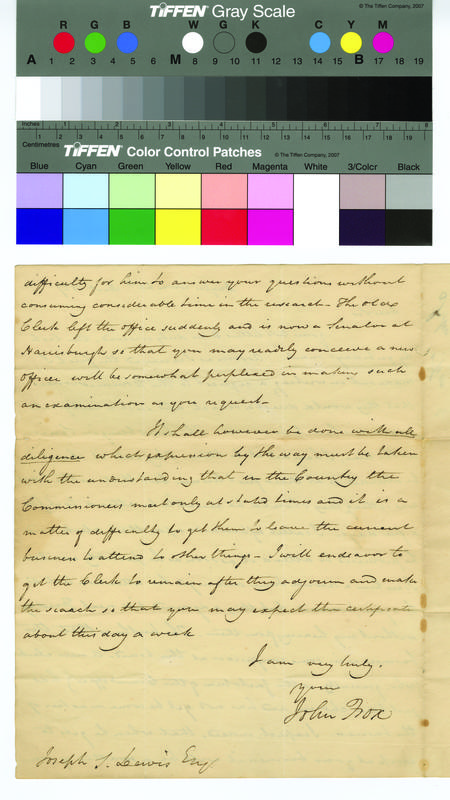 TIFFEN Gray Scale
© The Tiffen Company, 2007
R G B W G K C Y M
A 1 2 3 4 5 6 M 8 9 10 11 12 13 14 15 B 17 18 19
Inches 1 2 3 4 5 6 7 8
Centimetres 1 2 3 4 5 6 7 8 9 10 11 12 13 14 15 16 17 18 19
TIFFEN Color Control Patches
© The Tiffen Company, 2007
Blue Cyan Green Yellow Red Magenta White 3/Color Black
difficulty for him to answer your questions without
consuming considerable time in the research - The old
Clerk left the office suddenly and is now a Senator at
Harrisburgh so that you may readily conceive a new
officer will be somewhat perplexed in making such
an examination as you request -
It shall however be done with all
diligence which expression by the way must be taken
with the understanding that in the Country the
Commissioners meet only at stated times and it is a
matter of difficulty to get them to leave the current
business to attend to other things - I will endeavor to
get the Clerk to remain after they adjourn and make
the search so that you may expect the certificate
about this day a week
I am very truly.
yours
John Fox
Joseph S. Lewis Esq